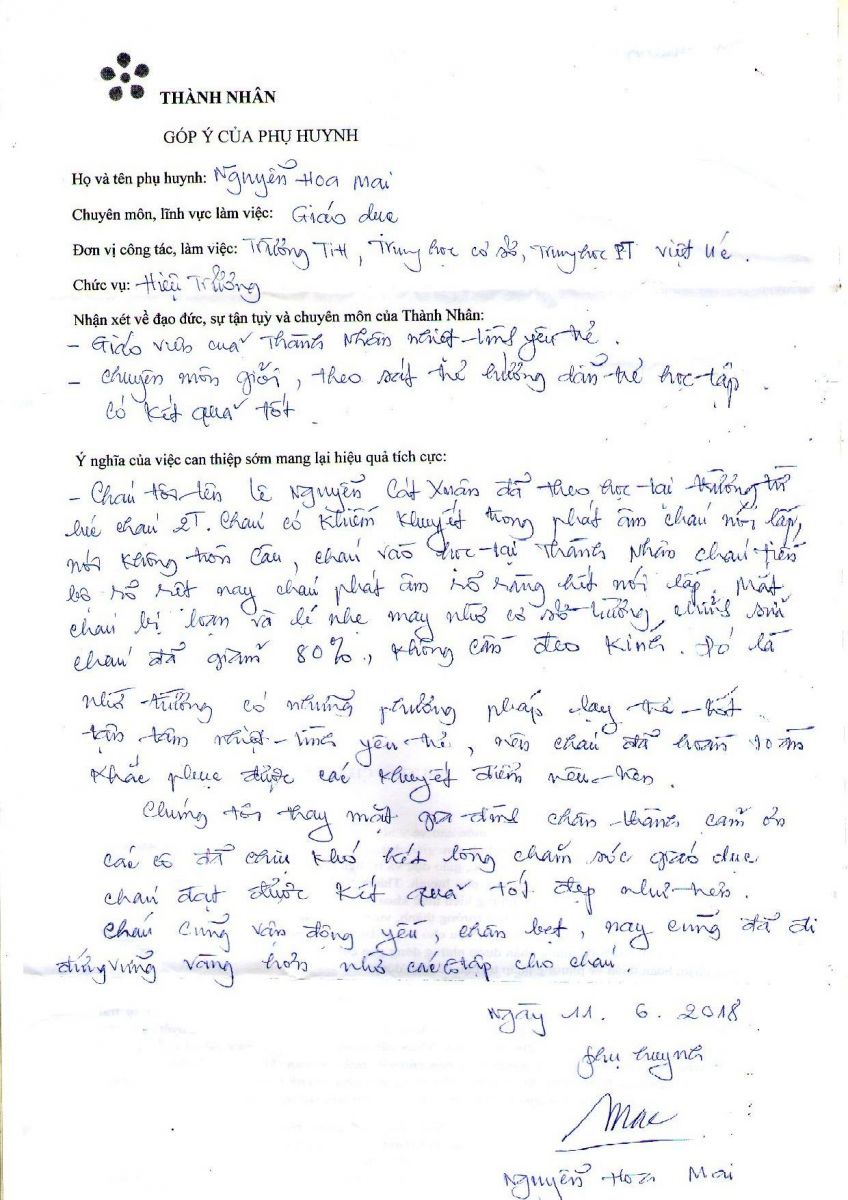 THÀNH NHÂN
GÓP Ý CỦA PHỤ HUYNH
Họ và tên phụ huynh: Nguyễn Hoa Mai
Chuyên môn, lĩnh vực làm việc: Giáo dục
Đơn vị công tác, làm việc: Trường TiH, Trung học cơ sở, Trung học PT việt
Chức vụ: Hiệu Trưởng
Nhận xét về đạo đức, sự tận tuỵ và chuyên môn của Thành Nhân:
- Giáo viên của Thành Nhân nhiệt tình yêu trẻ.
- Chuyên môn giỏi, theo sát trẻ hướng dẫn trẻ học tập.
có kết quả tốt
Ý nghĩa của việc can thiệp sớm mang lại hiệu quả tích cực:
- Cháu tôi tên Lê Nguyễn Cát Xuân đã theo học tại trường từ
lúc cháu 2T. Cháu có khiếm khuyết trong phát âm cháu nói lắp,
nói không tròn câu, cháu vào học tại Thành Nhân cháu tiến
bộ rõ rệt nay cháu phát âm rõ ràng hết nói lắp. Mắt
cháu bị loạn và lé nhẹ may nhờ cơ sở hướng chỉnh sửa
cháu đã giảm 80%, không cần đeo kính. Đó là
nhà trường có những phương pháp dạy trẻ tốt
tận tâm nhiệt tình yêu trẻ, nên cháu đã hoàn toàn
khắc phục được các khuyết điểm nêu trên.
Chúng tôi thay mặt gia đình chân thành cảm ơn
các cô đã chịu khó hết lòng chăm sóc giáo dục
cháu đạt được kết quả tốt đẹp như trên.
Cháu cũng vận động yếu, chân bẹt, nay cũng đã đi
đứng vững vàng hơn nhờ các cô tập cho cháu.
Ngày 11. 6. 2018
phụ huynh
Mai
Nguyễn Hoa Mai